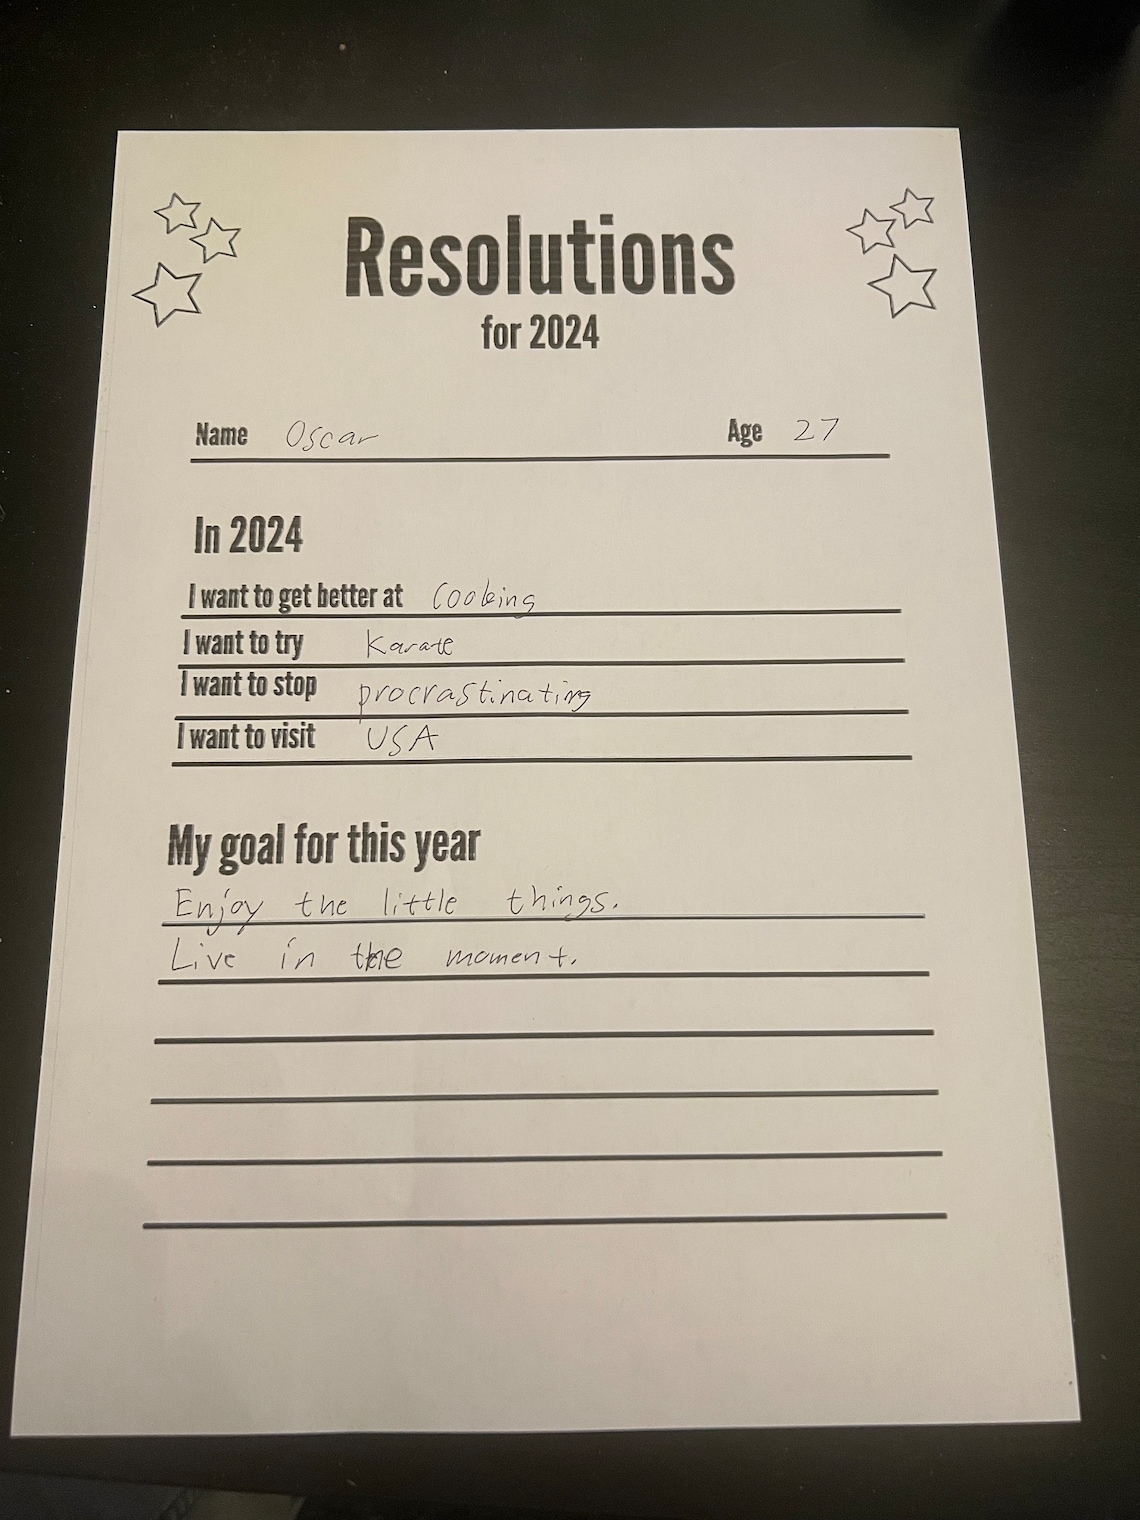 Resolutions
for 2024
Name Oscar Age 27
In 2024
I want to get better at Cooking
I want to try Karate
I want to stop procrastinating
I want to visit USA
My goal for this year
Enjoy the little things.
Live in the moment.